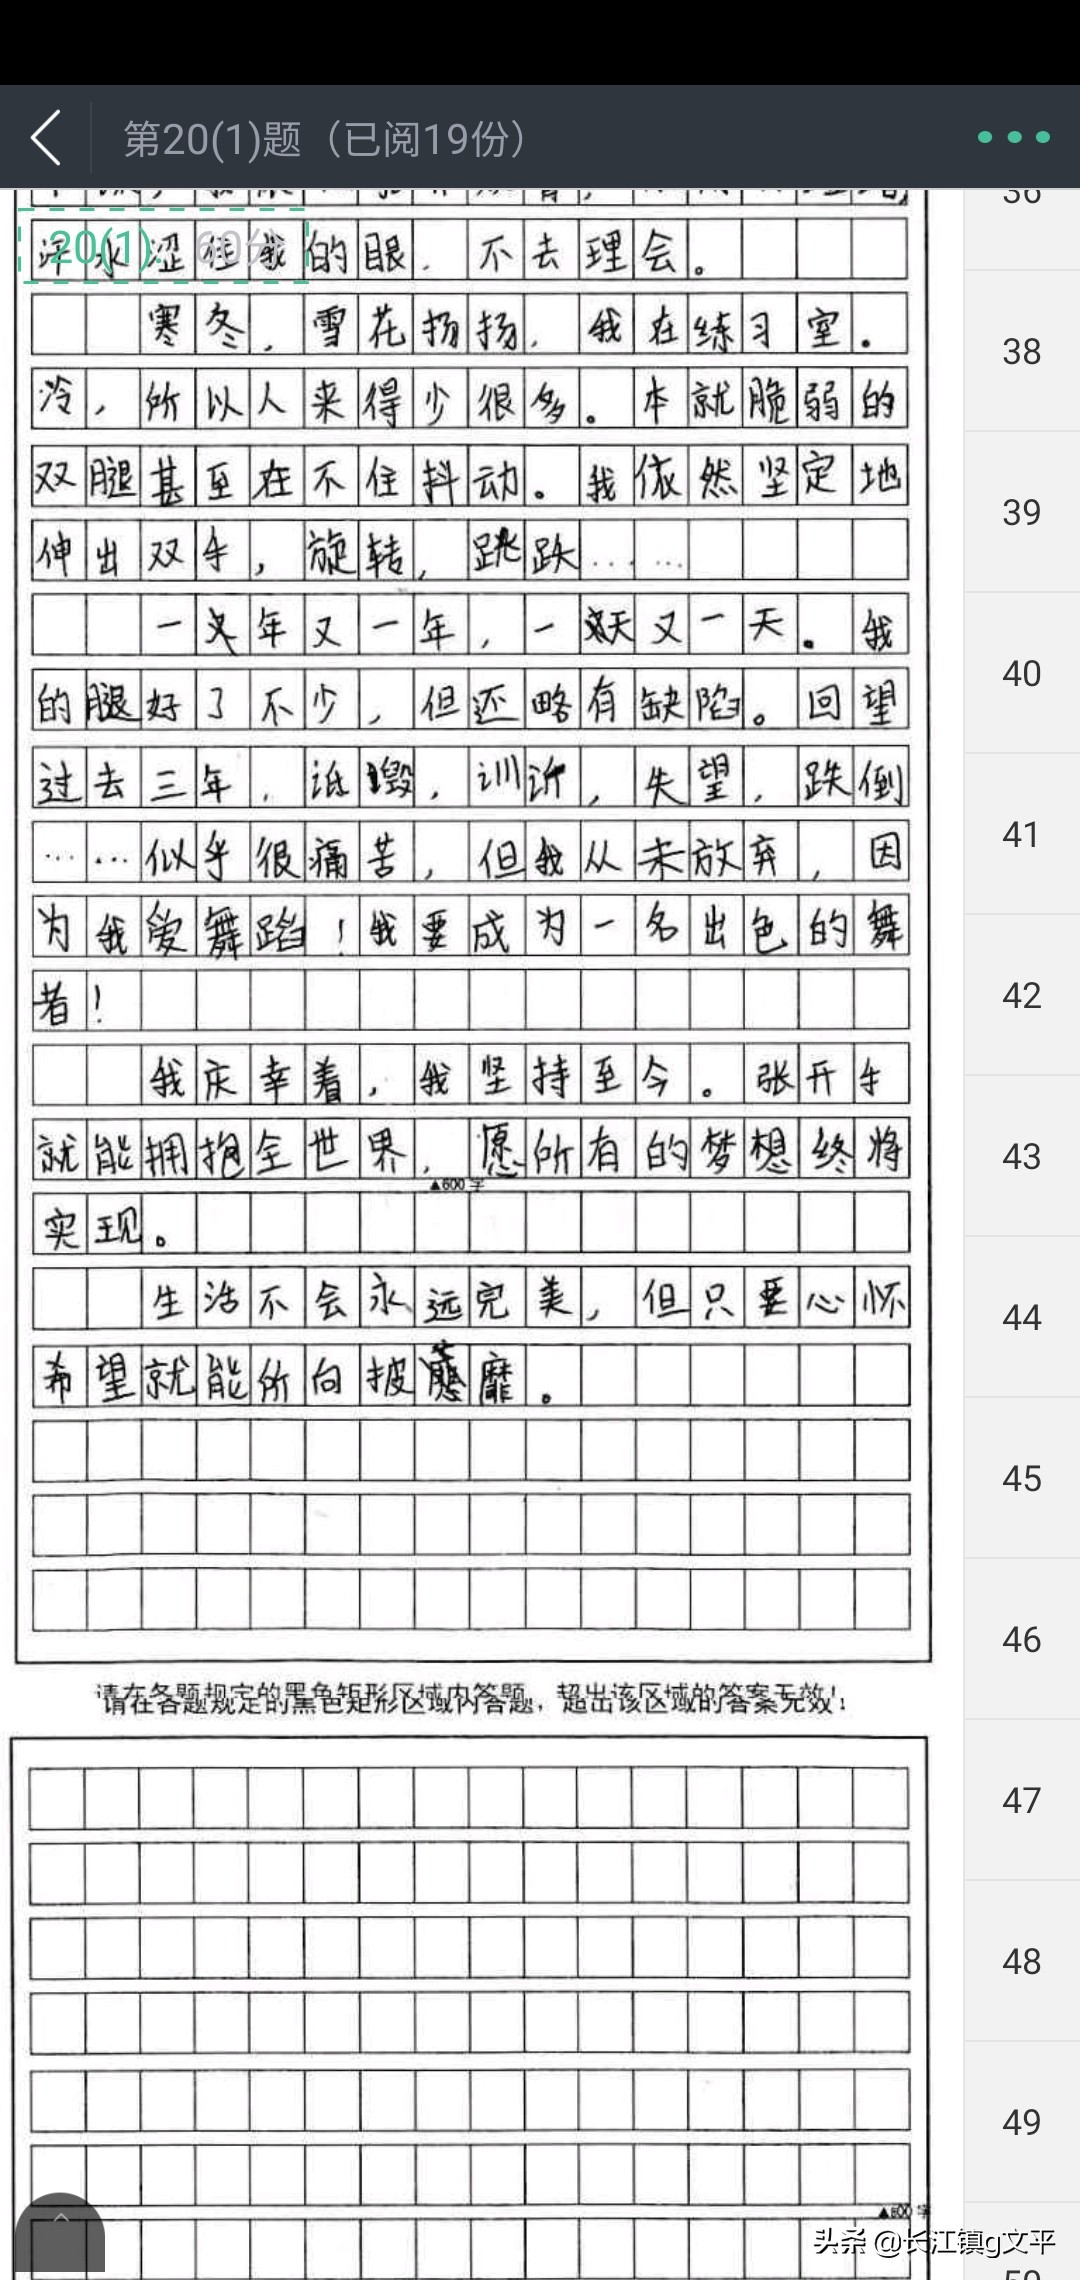 第20(1)题（已阅19份）
20(1): 60分
汗水涩住我的眼，不去理会。
寒冬，雪花扬扬，我在练习室。
冷，所以人来得少很多。本就脆弱的
双腿甚至在不住抖动。我依然坚定地
伸出双手，旋转，跳跃……
一年又一年，一天又一天。我
的腿好了不少，但还略有缺陷。回望
过去三年，诋毁，训诉，失望，跌倒
……似乎很痛苦，但我从未放弃，因
为我爱舞蹈！我要成为一名出色的舞
者！
我庆幸着，我坚持至今。张开手
就能拥抱全世界，愿所有的梦想终将
▲600字
实现。
生活不会永远完美，但只要心怀
希望就能所向披靡。
请在各题规定的黑色矩形区域内答题，超出该区域的答案无效！
请在各题规定的黑色矩形区域内答题，超出该区域的答案无效！
▲800字
36
38
39
40
41
42
43
44
45
46
47
48
49
50
头条 @长江镇g文平